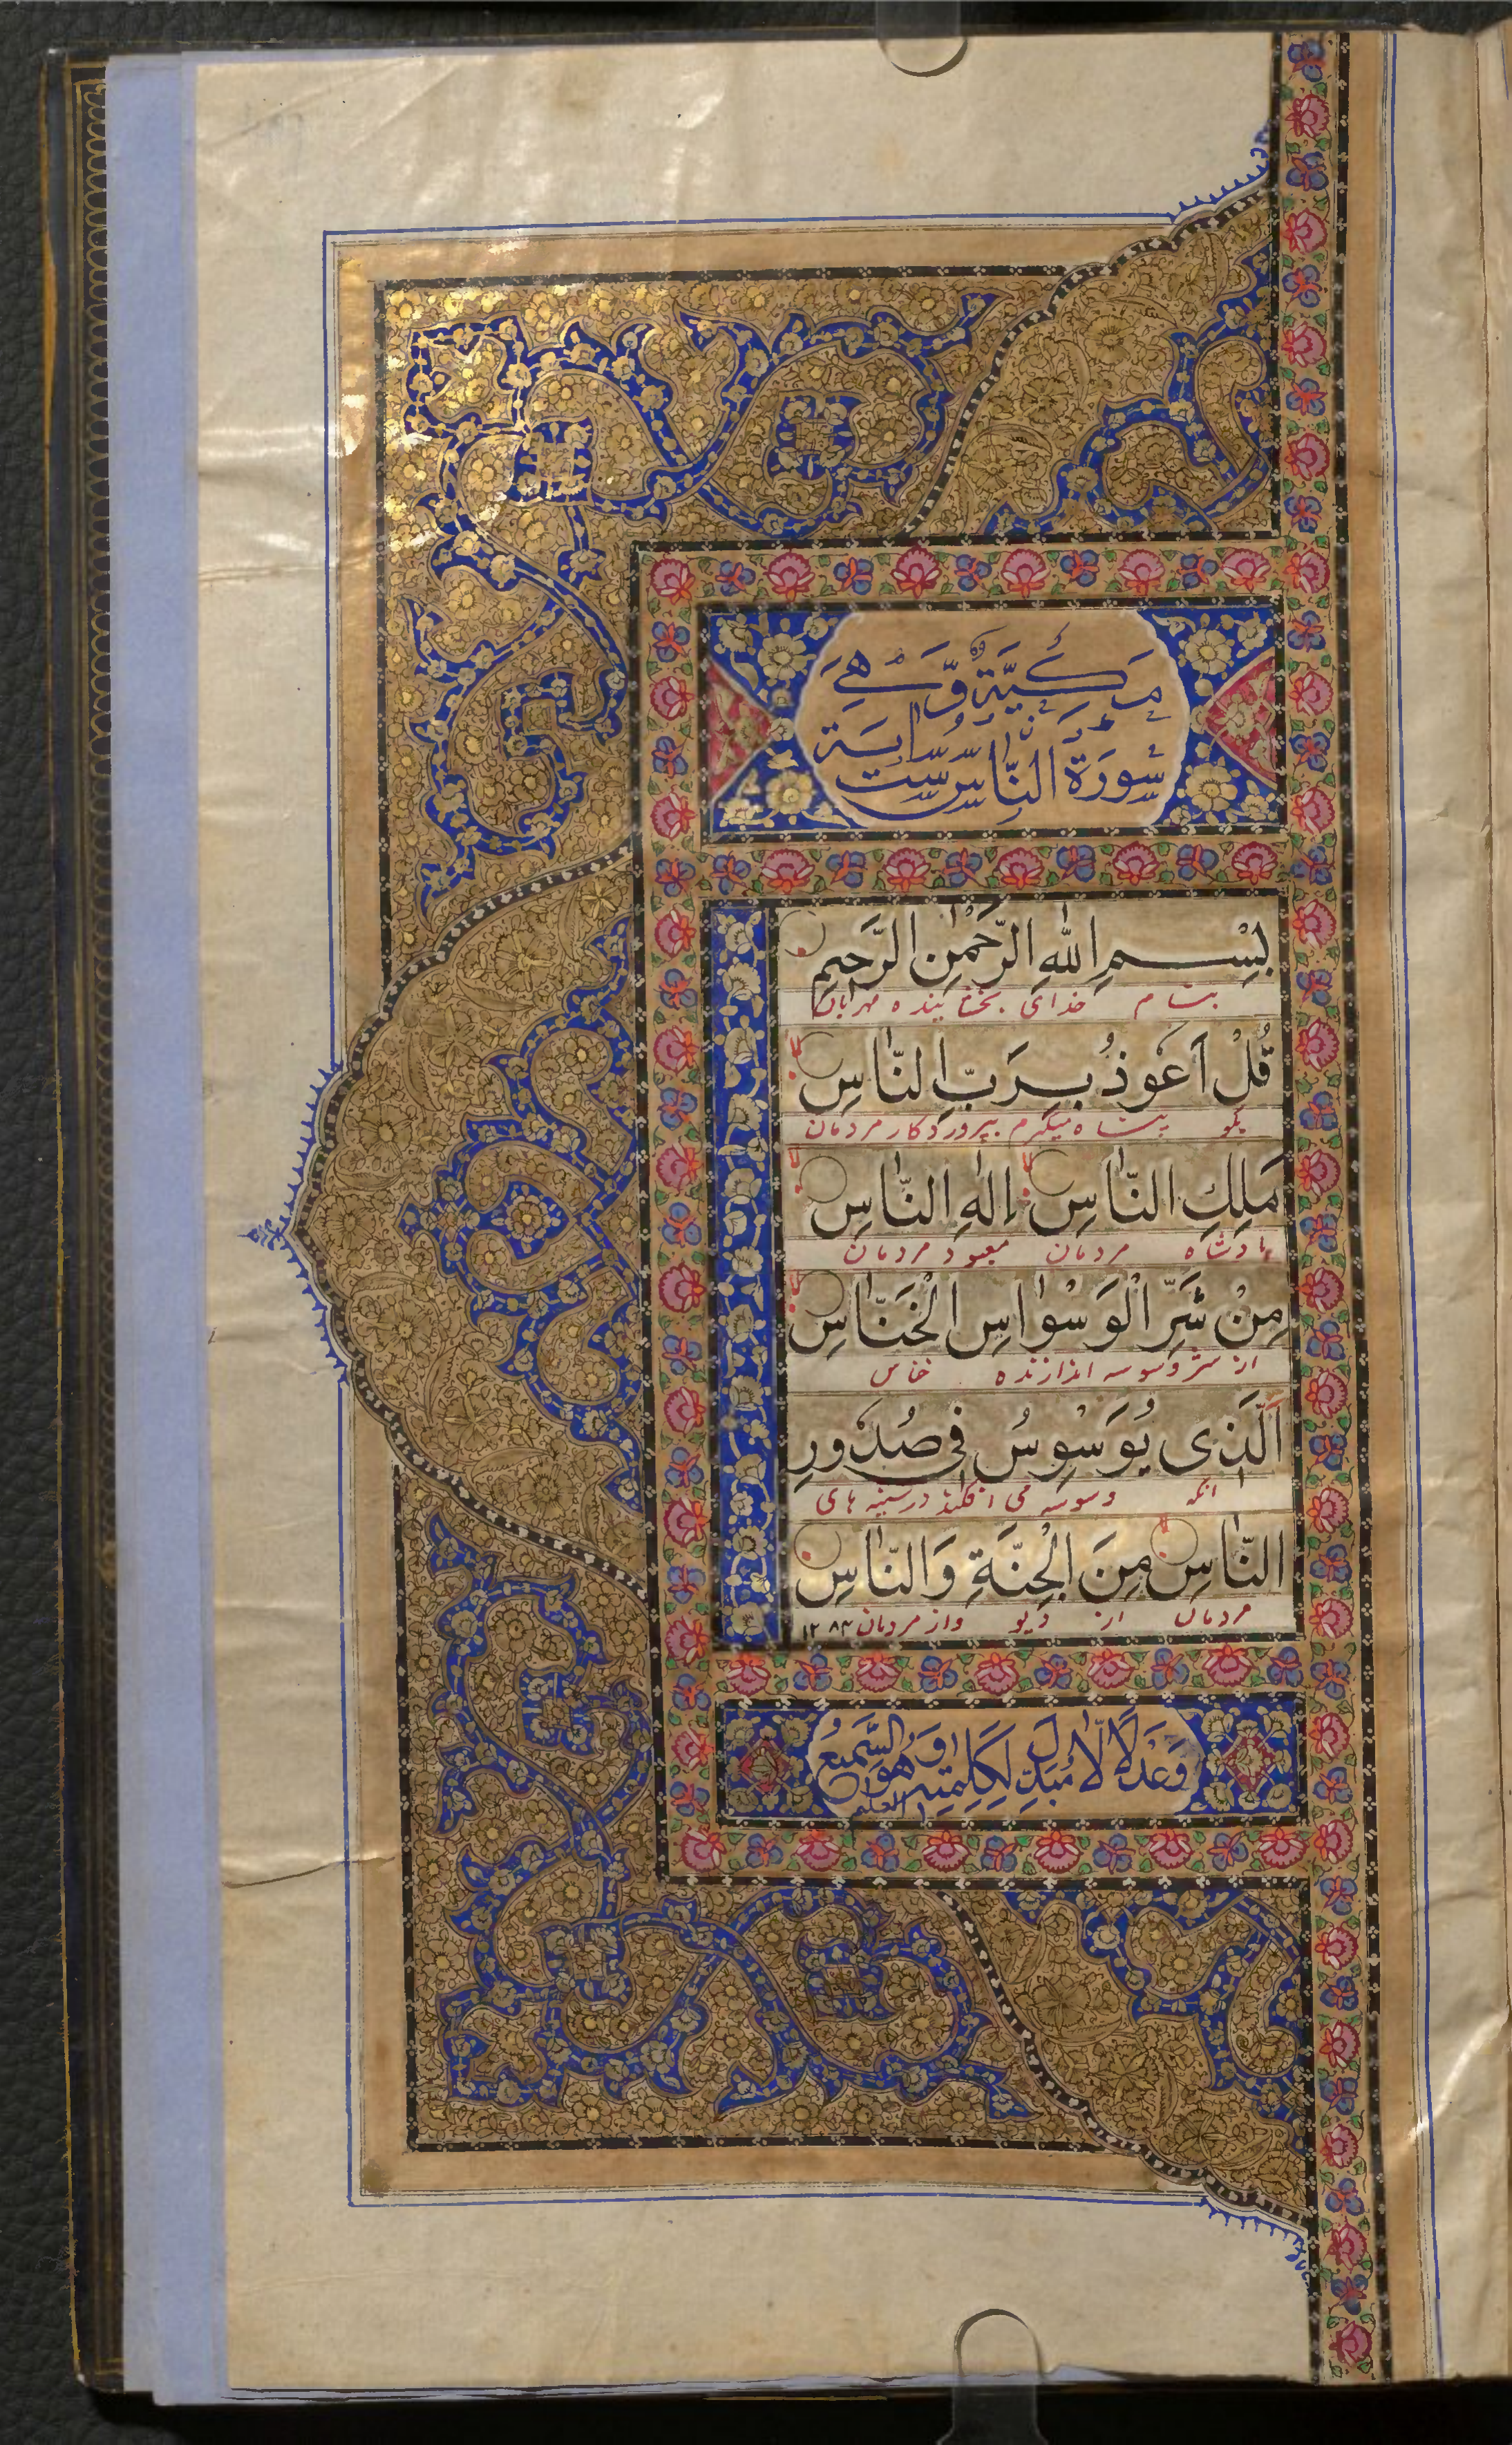 سُورَةُ النَّاسِ سِتُّ اٰيَةٍ
مَكِّيَّةٌ وَّهِيَ
بِسْمِ اللّٰهِ الرَّحْمٰنِ الرَّحِيمِ
بنام خدای بخشاینده مهربان
قُلْ اَعُوذُ بِرَبِّ النَّاسِ
بگو پناه میگیرم بپروردگار مردمان
مَلِكِ النَّاسِ اِلٰهِ النَّاسِ
پادشاه مردمان معبود مردمان
مِنْ شَرِّ الْوَسْوٰاسِ الْخَنَّاسِ
از شر وسوسه اندازنده خناس
اَلَّذِى يُوَسْوِسُ فِى صُدُورِ
آنکه وسوسه می افکند در سینه های
النَّاسِ مِنَ الْجِنَّةِ وَالنَّاسِ
مردمان از دیو واز مردمان ۱۲۸۴
وَعَدْلًا لَّا مُبَدِّلَ لِكَلِمٰتِهِ وَهُوَ السَّمِيعُ العليم